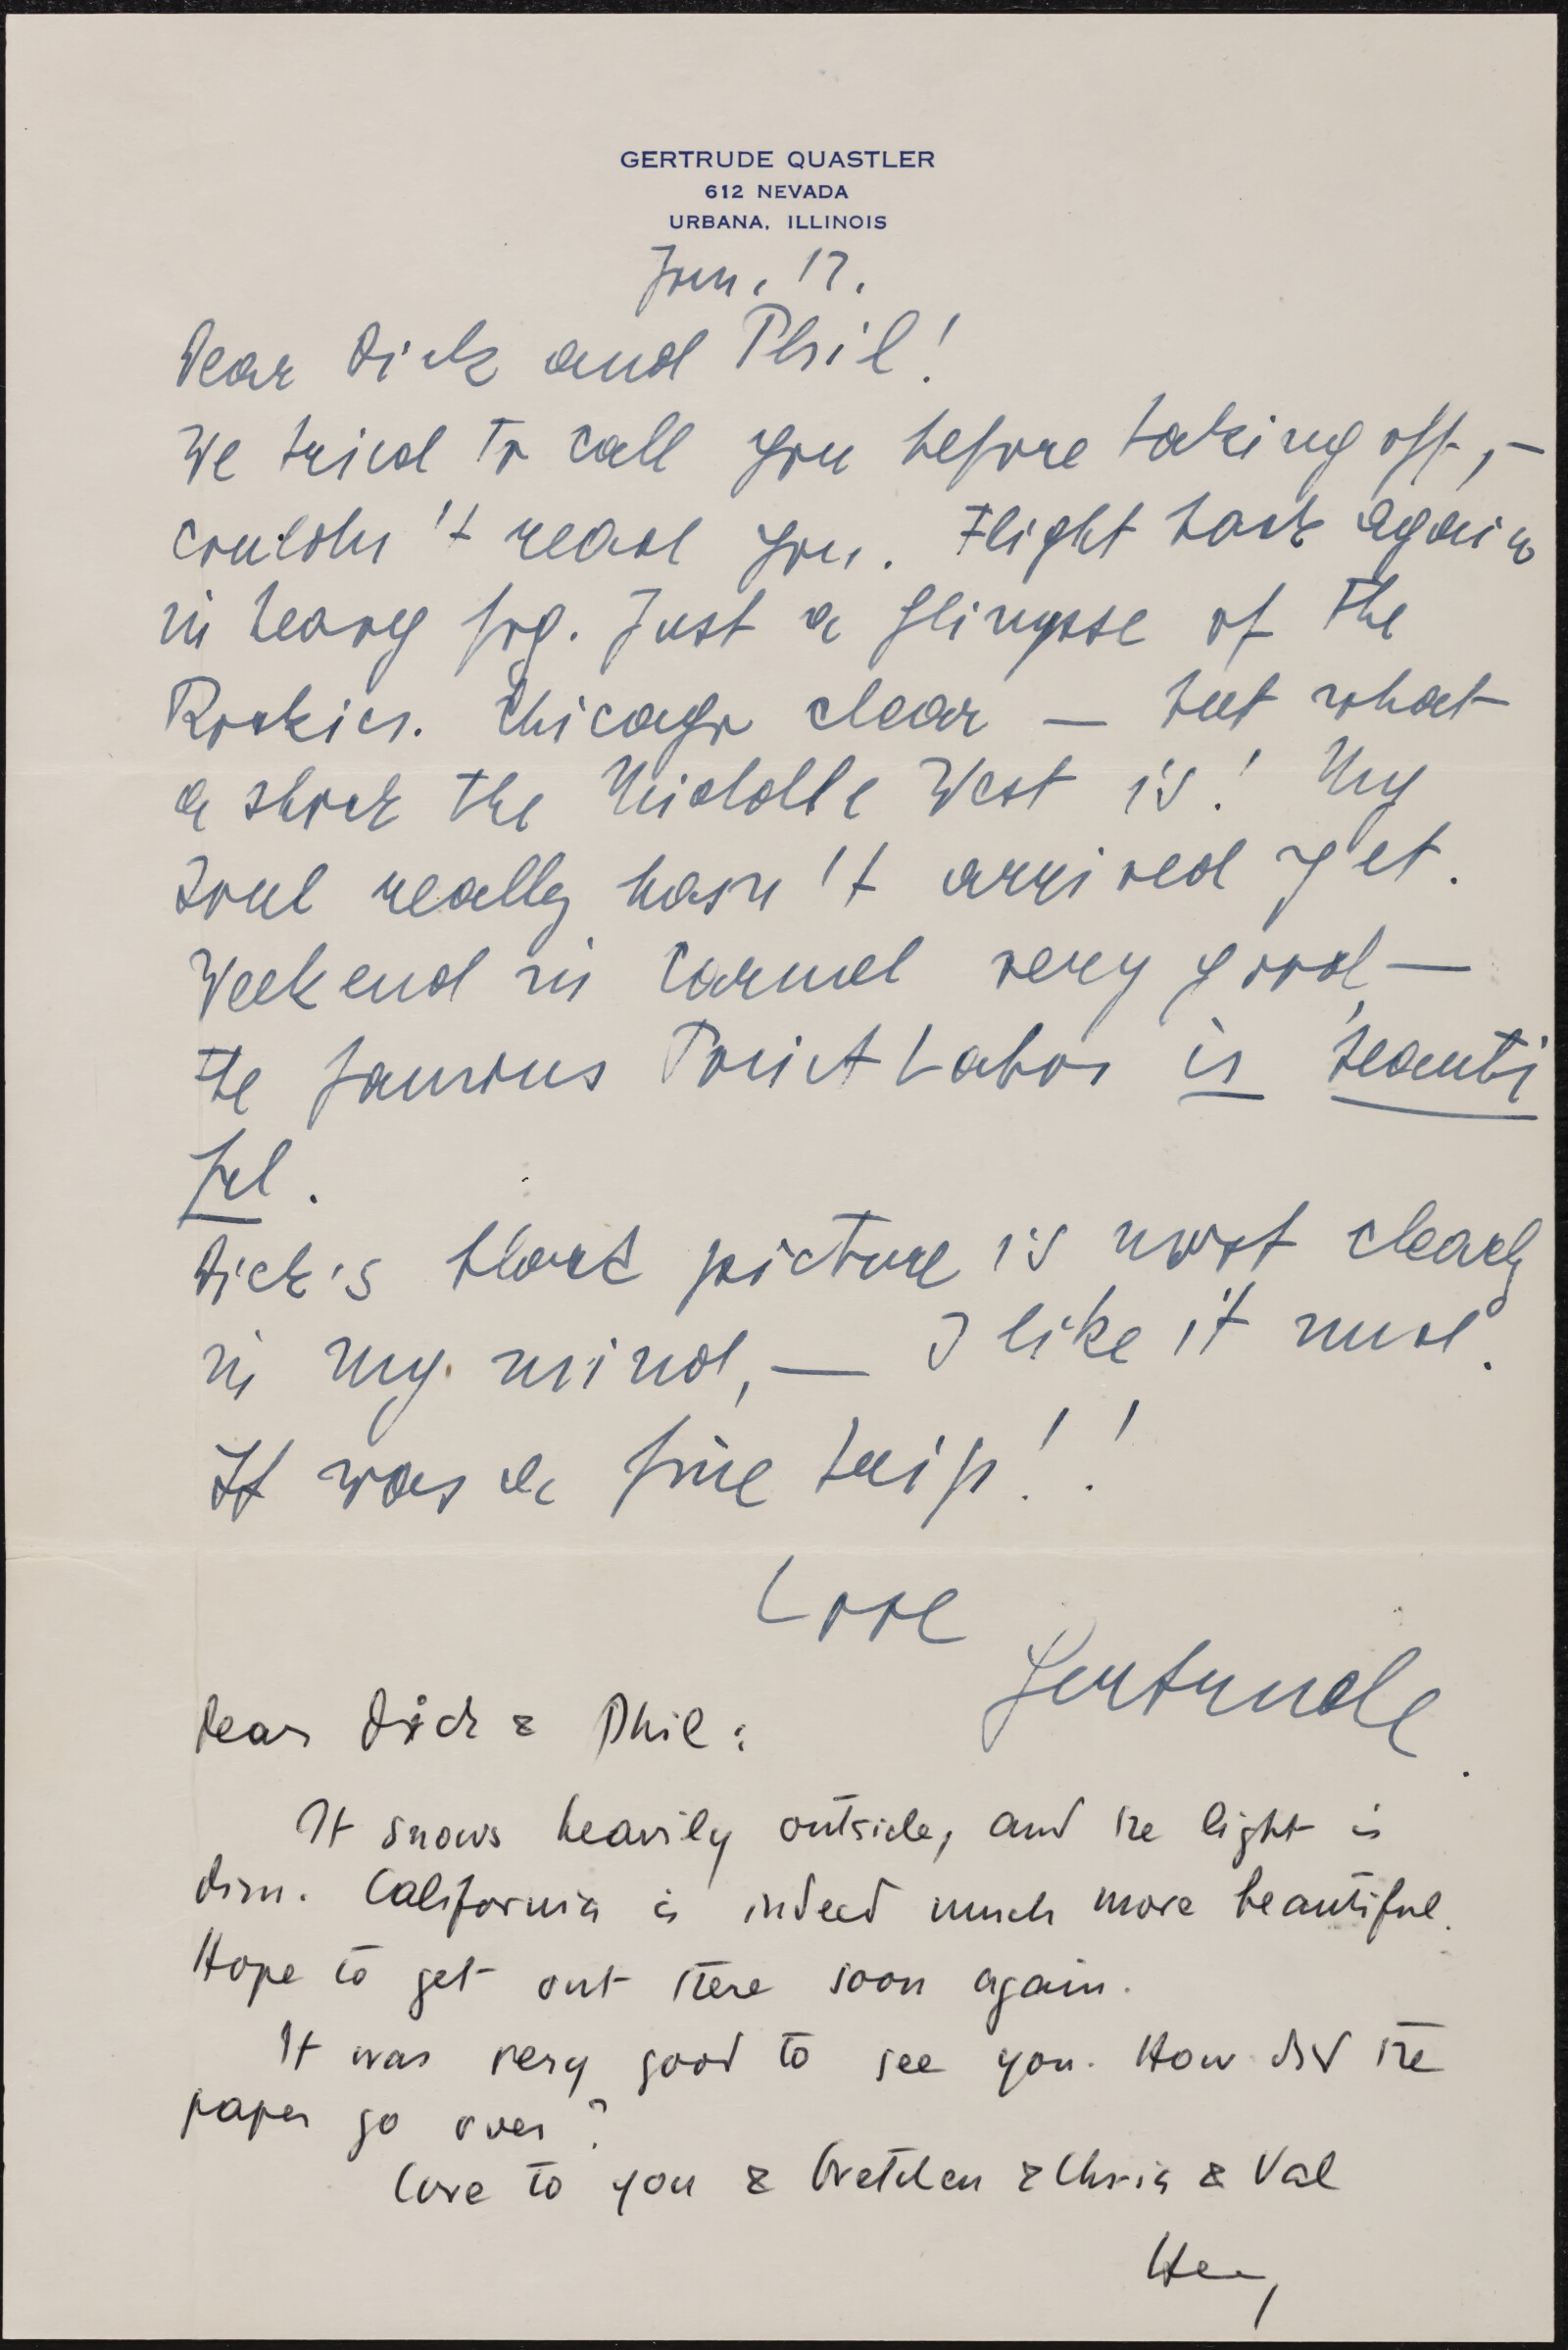 GERTRUDE QUASTLER
612 NEVADA
URBANA, ILLINOIS
Jan. 17.
Dear Dick and Phil!
We tried to call you before taking off, –
couldn't reach you. Flight back again
in heavy fog. Just a glimpse of the
Rockies. Chicago clear — but what
a shock the Middle West is! My
soul really hasn't arrived yet.
Weekend in Carmel very good, —
the famous Point Lobos is beauti
ful.
Dick's black picture is most clearly
in my mind, — I like it much.
It was a fine trip!!
Love
Gertrude.
Dear Dick & Phil:
It snows heavily outside, and the light is
dim. California is indeed much more beautiful.
Hope to get out there soon again.
It was very good to see you. How did the
paper go over?
Love to you & Gretchen & Chris & Val
Henry